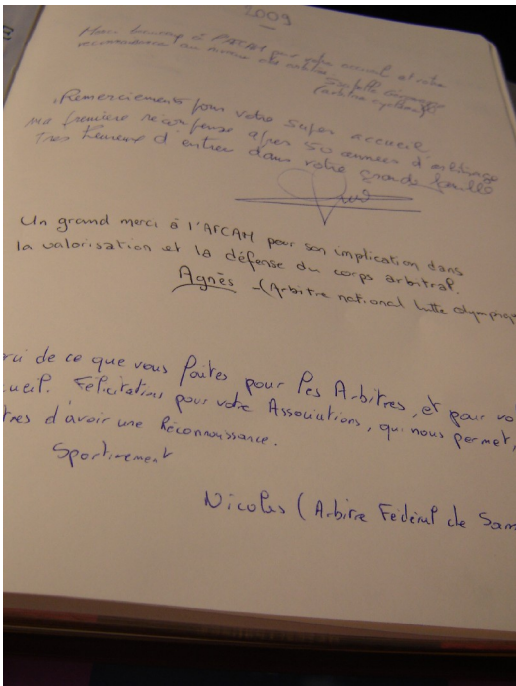 2009
Merci beaucoup à l'AFCAM pour votre accueil et votre
reconnaissance au niveau des arbitres
Isabelle
(arbitre
Remerciements pour votre super accueil
ma première récompense après 50 années d'arbitrage
Très heureux d'entrer dans votre grande famille
Un grand merci à l'AFCAM pour son implication dans
la valorisation et la défense du corps arbitral.
Agnès - (Arbitre national lutte olympique
rci de ce que vous faites pour les Arbitres, et pour vo
cueil. Félicitations pour votre Associations, qui nous permet,
tres d'avoir une Réconnaissance.
Sportivement
Nicolas (Arbitre Fédéral de Sam